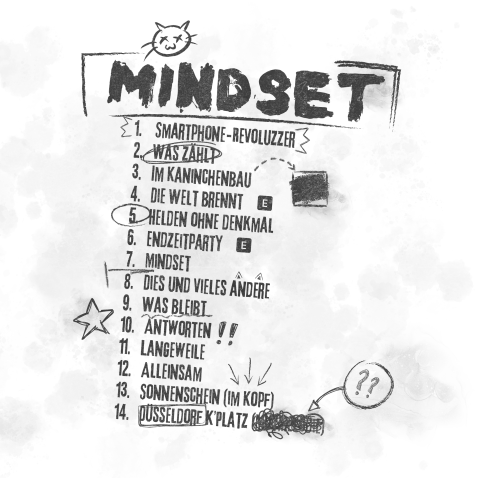 MINDSET
1. SMARTPHONE-REVOLUZZER
2. WAS ZÄHLT
3. IM KANINCHENBAU
4. DIE WELT BRENNT E
5. HELDEN OHNE DENKMAL
6. ENDZEITPARTY E
7. MINDSET
8. DIES UND VIELES ANDERE
9. WAS BLEIBT
10. ANTWORTEN !!
11. LANGEWEILE
12. ALLEINSAM
13. SONNENSCHEIN (IM KOPF)
??
14. DÜSSELDORF K'PLATZ